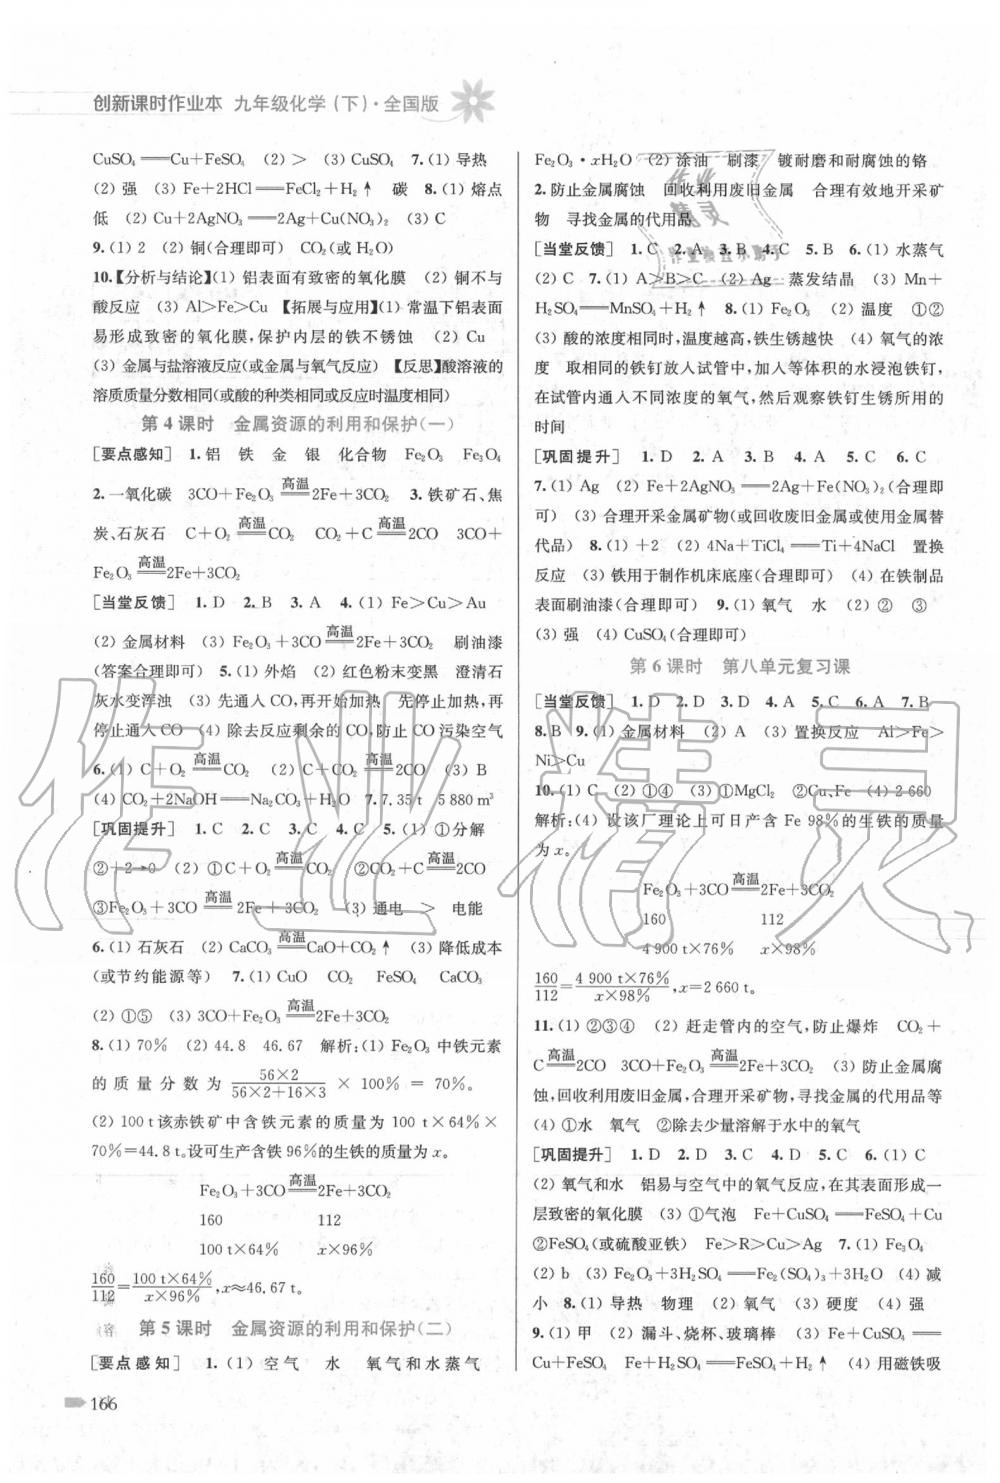 创新课时作业本 九年级化学(下)·全国版
CuSO₄══Cu+FeSO₄ (2)> (3)CuSO₄ 7.(1)导热
(2)强 (3)Fe+2HCl══FeCl₂+H₂↑ 碳 8.(1)熔点
低 (2)Cu+2AgNO₃══2Ag+Cu(NO₃)₂ (3)C
9.(1)2 (2)铜(合理即可) CO₂(或H₂O)
10.【分析与结论】(1)铝表面有致密的氧化膜 (2)铜不与
酸反应 (3)Al>Fe>Cu 【拓展与应用】(1)常温下铝表面
易形成致密的氧化膜,保护内层的铁不锈蚀 (2)Cu
(3)金属与盐溶液反应(或金属与氧气反应) 【反思】酸溶液的
溶质质量分数相同(或酸的种类相同或反应时温度相同)
第4课时 金属资源的利用和保护(一)
[要点感知] 1.铝 铁 金 银 化合物 Fe₂O₃ Fe₃O₄
2.一氧化碳 3CO+Fe₂O₃ 高温══ 2Fe+3CO₂ 3.铁矿石、焦
炭、石灰石 C+O₂ 高温══ CO₂ CO₂+C 高温══ 2CO 3CO+
Fe₂O₃ 高温══ 2Fe+3CO₂
[当堂反馈] 1.D 2.B 3.A 4.(1)Fe>Cu>Au
(2)金属材料 (3)Fe₂O₃+3CO 高温══ 2Fe+3CO₂ 刷油漆
(答案合理即可) 5.(1)外焰 (2)红色粉末变黑 澄清石
灰水变浑浊 (3)先通入CO,再开始加热 先停止加热,再
停止通入CO (4)除去反应剩余的CO,防止CO污染空气
6.(1)C+O₂ 高温══ CO₂ (2)CO₂+C 高温══ 2CO (3)B
(4)CO₂+2NaOH══Na₂CO₃+H₂O 7.7.35t 5 880 m³
[巩固提升] 1.C 2.C 3.C 4.C 5.(1)①分解
②+2→0 (2)①C+O₂ 高温══ CO₂ ②CO₂+C 高温══ 2CO
③Fe₂O₃+3CO 高温══ 2Fe+3CO₂ (3)通电 > 电能
6.(1)石灰石 (2)CaCO₃ 高温══ CaO+CO₂↑ (3)降低成本
(或节约能源等) 7.(1)CuO CO₂ FeSO₄ CaCO₃
(2)①⑤ (3)3CO+Fe₂O₃ 高温══ 2Fe+3CO₂
8.(1)70% (2)44.8 46.67 解析:(1)Fe₂O₃中铁元素
的质量分数为 56×2/(56×2+16×3) × 100% = 70%。
(2)100 t该赤铁矿中含铁元素的质量为100 t×64%×
70%=44.8 t。设可生产含铁96%的生铁的质量为x。
Fe₂O₃+3CO 高温══ 2Fe+3CO₂
160 112
100 t×64% x×96%
160/112=100 t×64%/x×96%,x≈46.67 t。
第5课时 金属资源的利用和保护(二)
[要点感知] 1.(1)空气 水 氧气和水蒸气
166
Fe₂O₃·xH₂O (2)涂油 刷漆 镀耐磨和耐腐蚀的铬
2.防止金属腐蚀 回收利用废旧金属 合理有效地开采矿
物 寻找金属的代用品
[当堂反馈] 1.C 2.A 3.B 4.C 5.B 6.(1)水蒸气
(2)C 7.(1)A>B>C (2)Ag 蒸发结晶 (3)Mn+
H₂SO₄══MnSO₄+H₂↑ 8.(1)Fe₂O₃ (2)温度 ①②
(3)酸的浓度相同时,温度越高,铁生锈越快 (4)氧气的浓
度 取相同的铁钉放入试管中,加入等体积的水浸泡铁钉,
在试管内通入不同浓度的氧气,然后观察铁钉生锈所用的
时间
[巩固提升] 1.D 2.A 3.D 4.B 5.C 6.C
7.(1)Ag (2)Fe+2AgNO₃══2Ag+Fe(NO₃)₂(合理即
可) (3)合理开采金属矿物(或回收废旧金属或使用金属替
代品) 8.(1)+2 (2)4Na+TiCl₄══Ti+4NaCl 置换
反应 (3)铁用于制作机床底座(合理即可) (4)在铁制品
表面刷油漆(合理即可) 9.(1)氧气 水 (2)② ③
(3)强 (4)CuSO₄(合理即可)
第6课时 第八单元复习课
[当堂反馈] 1.D 2.D 3.D 4.D 5.C 6.A 7.B
8.B 9.(1)金属材料 (2)A (3)置换反应 Al>Fe>
Ni>Cu
10.(1)C (2)①④ (3)①MgCl₂ ②Cu、Fe (4)2 660
解析:(4)设该厂理论上可日产含Fe 98%的生铁的质量
为x。
Fe₂O₃+3CO 高温══ 2Fe+3CO₂
160 112
4 900 t×76% x×98%
160/112=4 900 t×76%/x×98%,x=2 660 t。
11.(1)②③④ (2)赶走管内的空气,防止爆炸 CO₂+
C 高温══ 2CO 3CO+Fe₂O₃ 高温══ 2Fe+3CO₂ (3)防止金属腐
蚀,回收利用废旧金属,合理开采矿物,寻找金属的代用品等
(4)①水 氧气 ②除去少量溶解于水中的氧气
[巩固提升] 1.D 2.D 3.C 4.C 5.D 6.(1)C
(2)氧气和水 铝易与空气中的氧气反应,在其表面形成一
层致密的氧化膜 (3)①气泡 Fe+CuSO₄══FeSO₄+Cu
②FeSO₄(或硫酸亚铁) Fe>R>Cu>Ag 7.(1)Fe₃O₄
(2)b (3)Fe₂O₃+3H₂SO₄══Fe₂(SO₄)₃+3H₂O (4)减
小 8.(1)导热 物理 (2)氧气 (3)硬度 (4)强
9.(1)甲 (2)漏斗、烧杯、玻璃棒 (3)Fe+CuSO₄══
Cu+FeSO₄ Fe+H₂SO₄══FeSO₄+H₂↑ (4)用磁铁吸
作业精灵